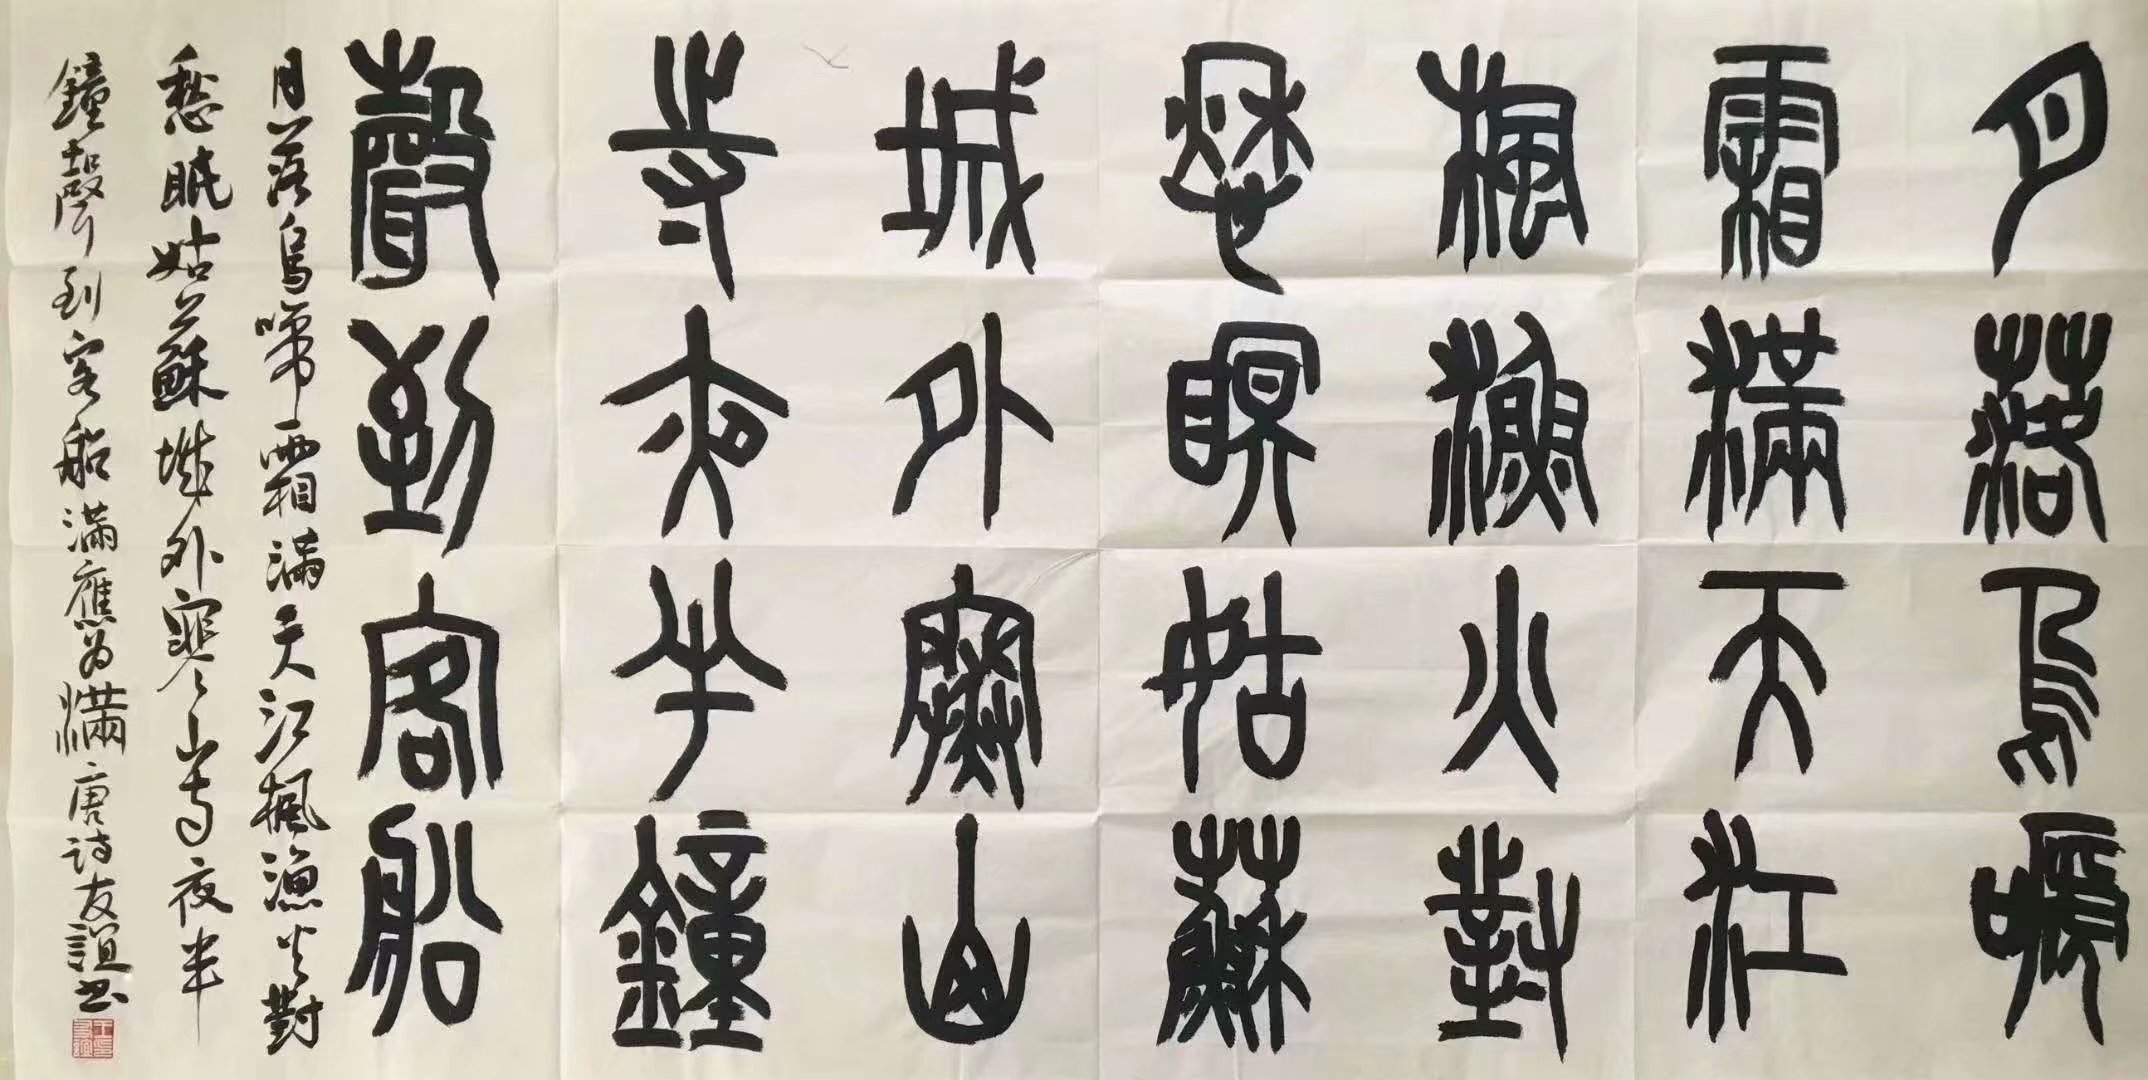 月落烏啼
霜滿天江
楓漁火對
愁瞑姑蘇
城外寒山
寺夜半鐘
聲到客船
月落烏啼霜滿天江楓漁火對
愁眠姑蘇城外寒山寺夜半
鐘聲到客船滿應为滿唐詩友誼书